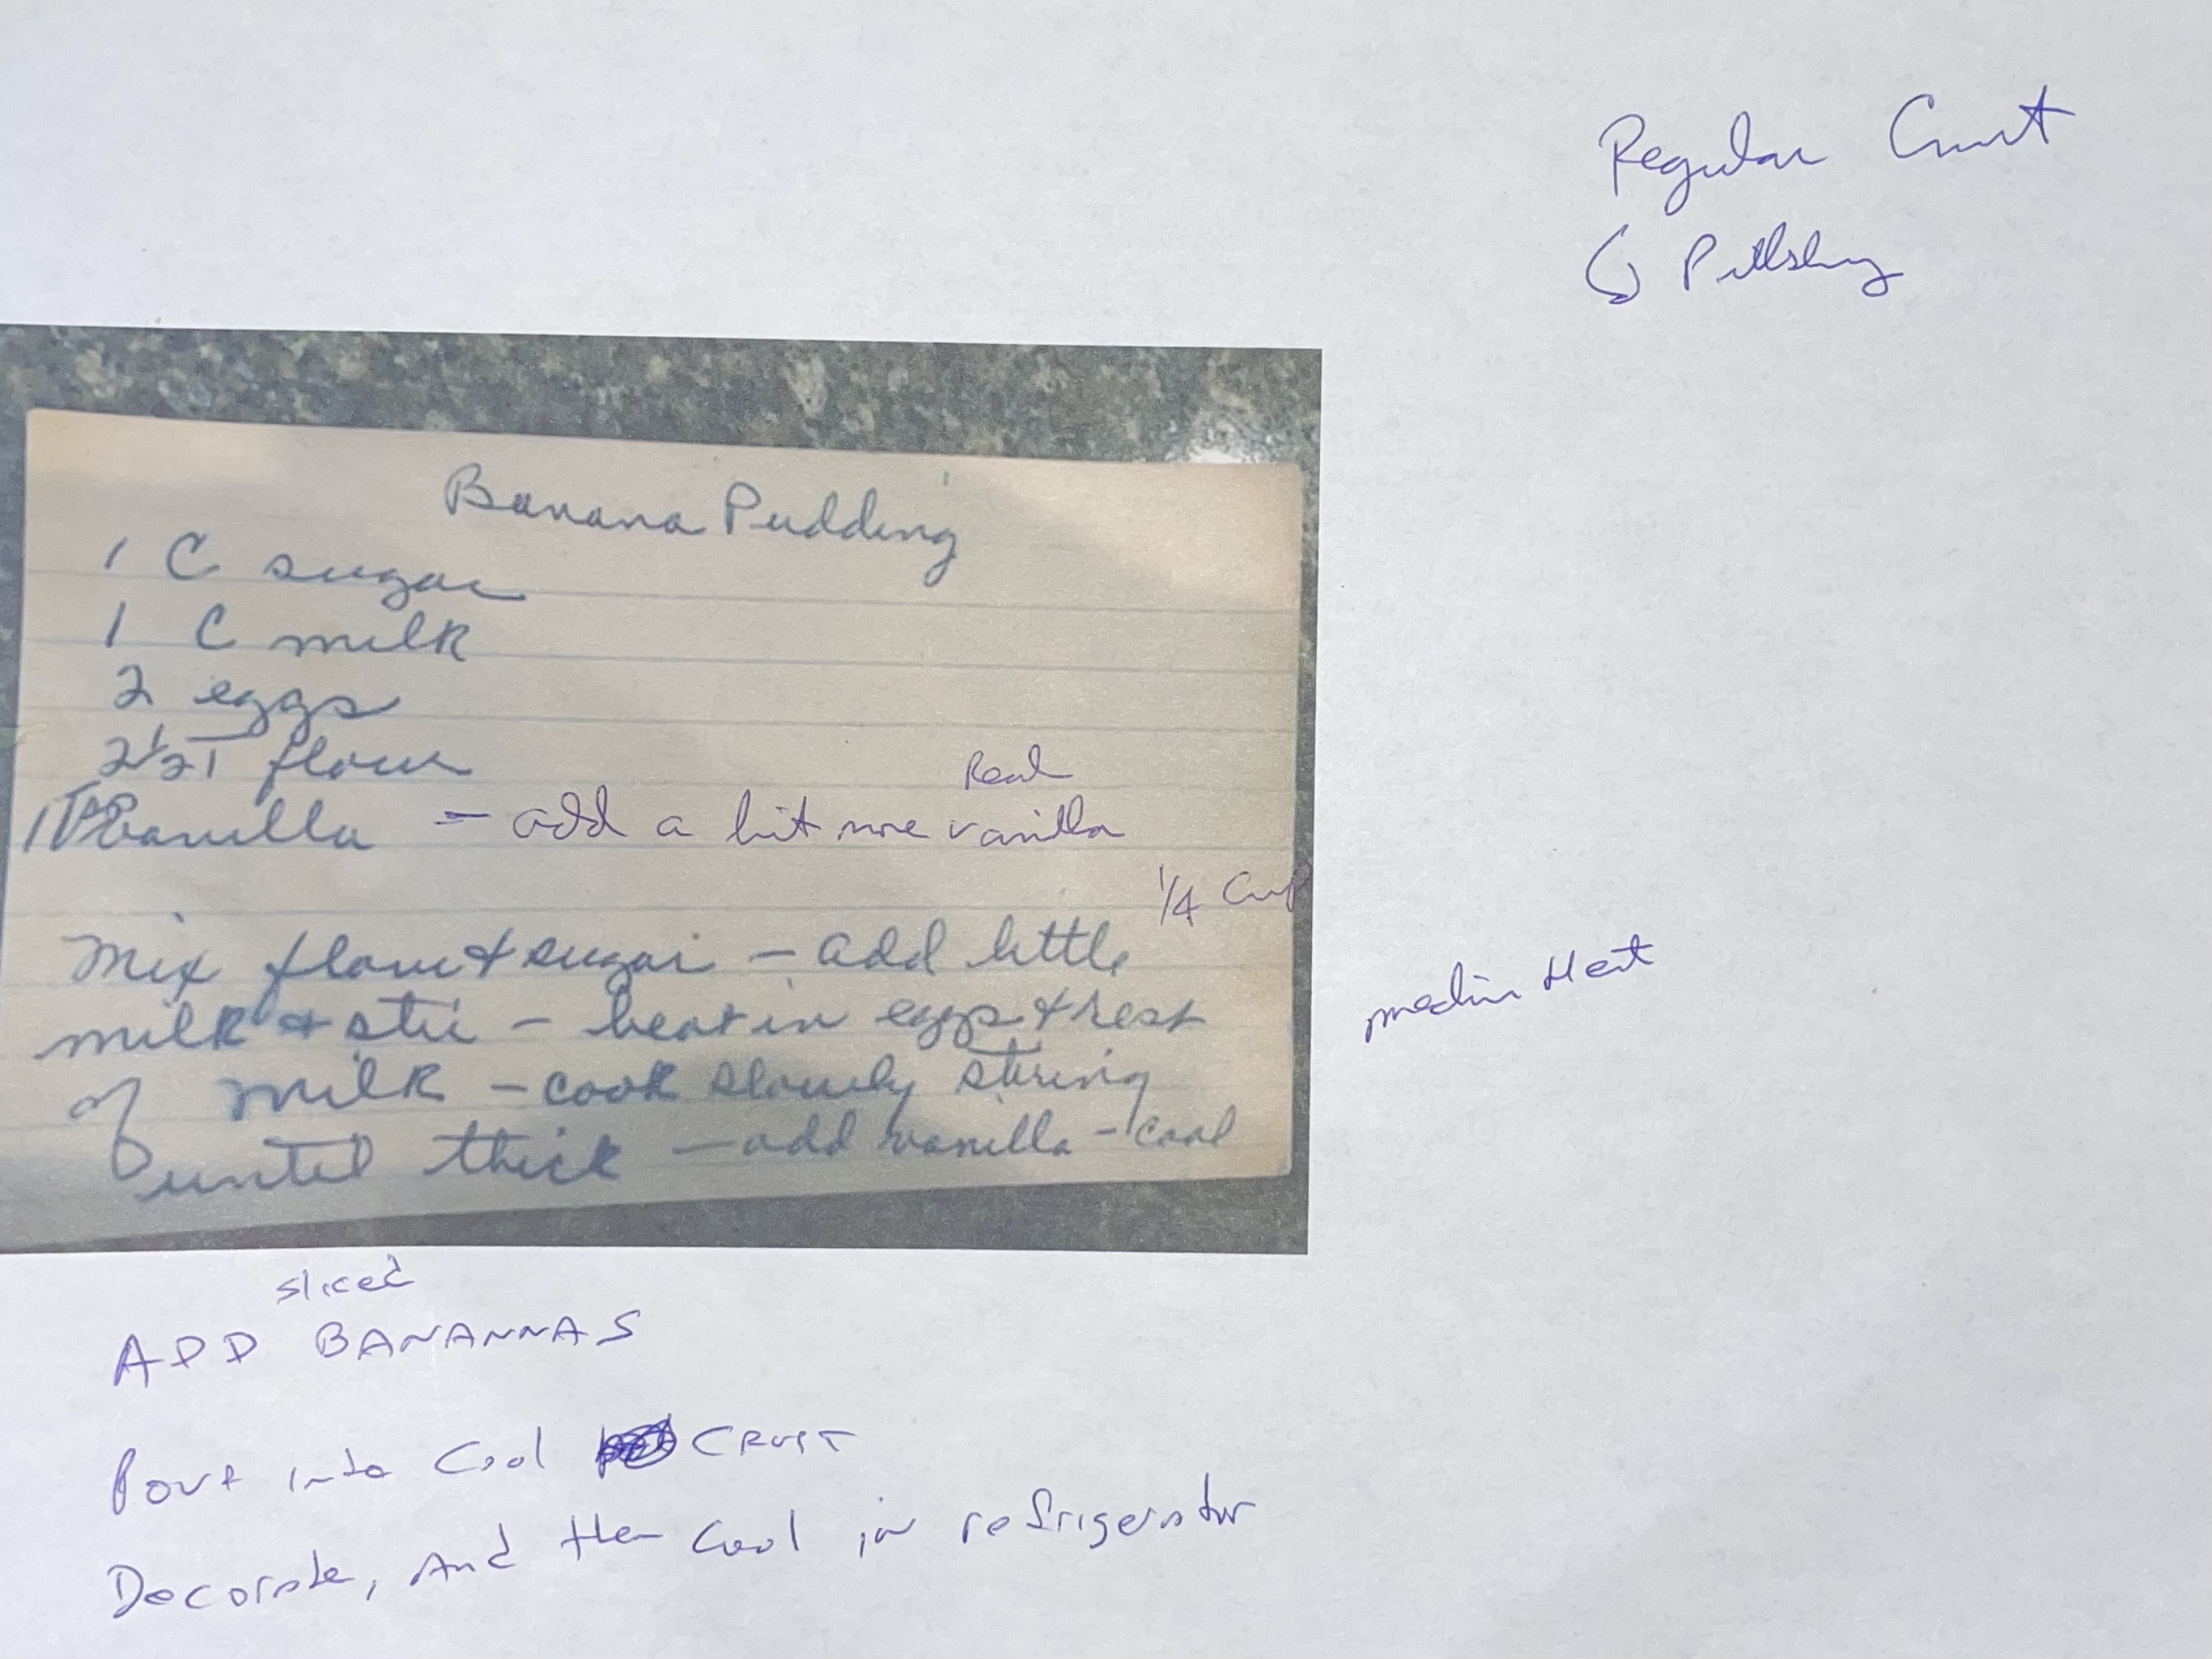 Regular Crust
Pillsbury
Banana Pudding
1 C sugar
1 C milk
2 eggs
2 1/2 T flour
Real
1 vanilla = add a bit more vanilla
1/4 Cup
Mix flour + sugar - add little
milk + stir - beat in eggs + rest
medium Heat
of milk - cook slowly stiring
until thick - add vanilla - cool
sliced
ADD BANANNAS
Pour into Cool CRUST
Decorate, And then Cool in refrigerator